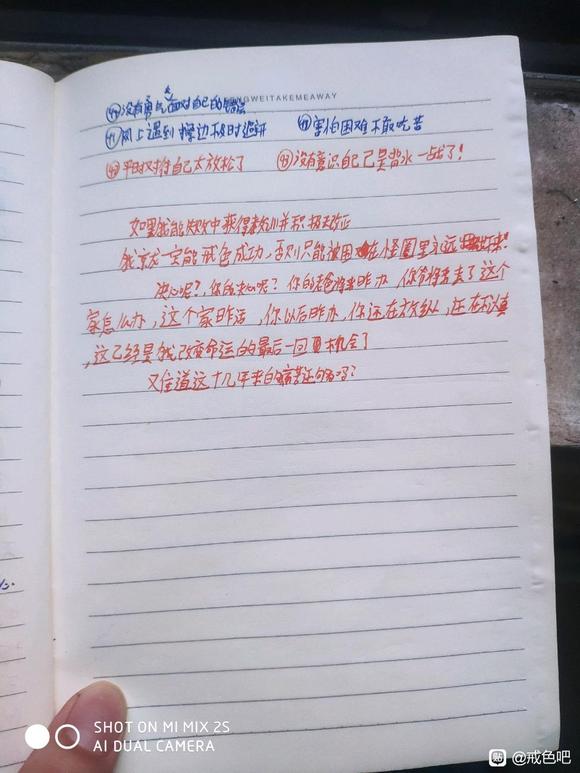 NGWEITAKEMEAWAY
没有勇气面对自己的错误
网上遇到擦边不及时逃避 害怕困难不敢吃苦
平时对待自己太放松了 没有意识自己已是背水一战了!
如果我能从失败中获得教训并积极改正
我就一定能戒色成功,否则只能被困在怪圈里永远出不来!
决心呢?,你的决心呢?你的爸爸将来咋办,你爷爷去了这个
家怎么办,这个家咋活,你以后咋办,你还在放纵,还在不认真
,这已经是我改变命运的最后一回机会了
这十几年来的病苦还不够吗?
SHOT ON MI MIX 2S
AI DUAL CAMERA
贴 @戒色吧